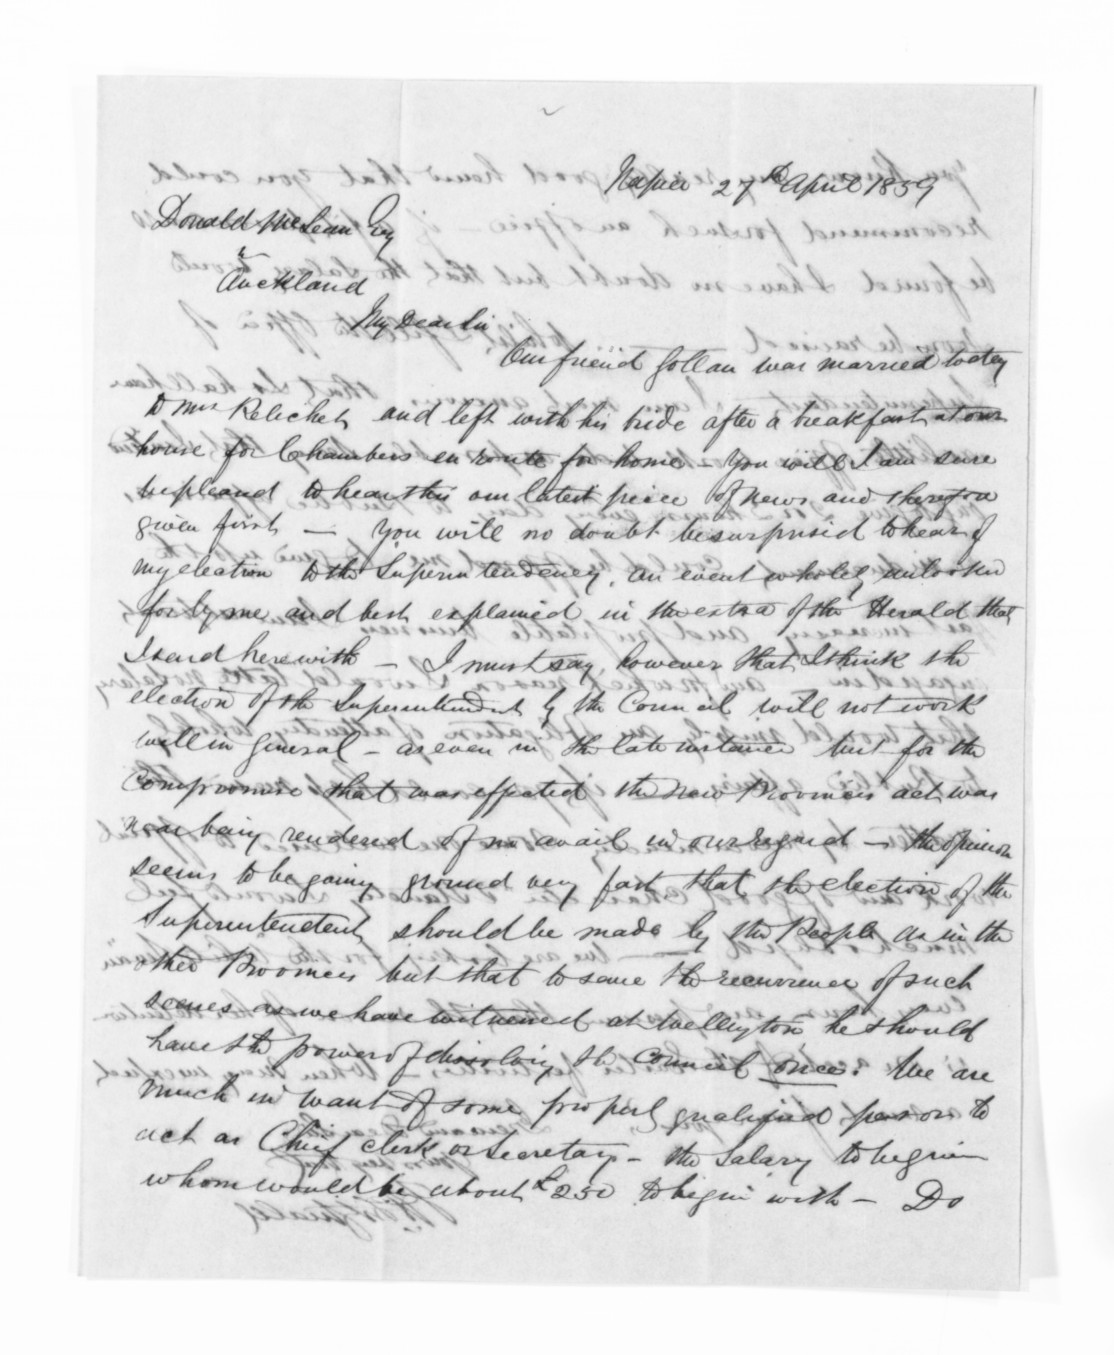 Napier 27th April 1859
Donald McLean Esq
Auckland
My Dear Sir
Our friend Gollan was married today
to Mrs and left with his bride after a breakfast at our
house for Chambers en route for home - You will I am sure
be pleased to hear this our latest piece of news and therefore
given first — You will no doubt be surprised to hear of
my election to the Superintendency, an event wholly unlooked
for by me and best explained in the extra of the Herald that
I send herewith — I must say however that I think the
election of the Superintendent by the Council will not work
well in general - as even in the late instance but for the
compromise that was effected the New Provinces act was
near being rendered of no avail in our regard — the opinion
seems to be gaing ground very fast that the election of the
Superintendent should be made by the People as in the
other Provinces but that to save the recurrence of such
scenes as we have witnessed at Wellington he should
have the power of dissolving the Council once. We are
much in want of some properly qualified person to
act as Chief clerk or Secretary - the Salary to begin
whom would be about £250 to begin with — Do